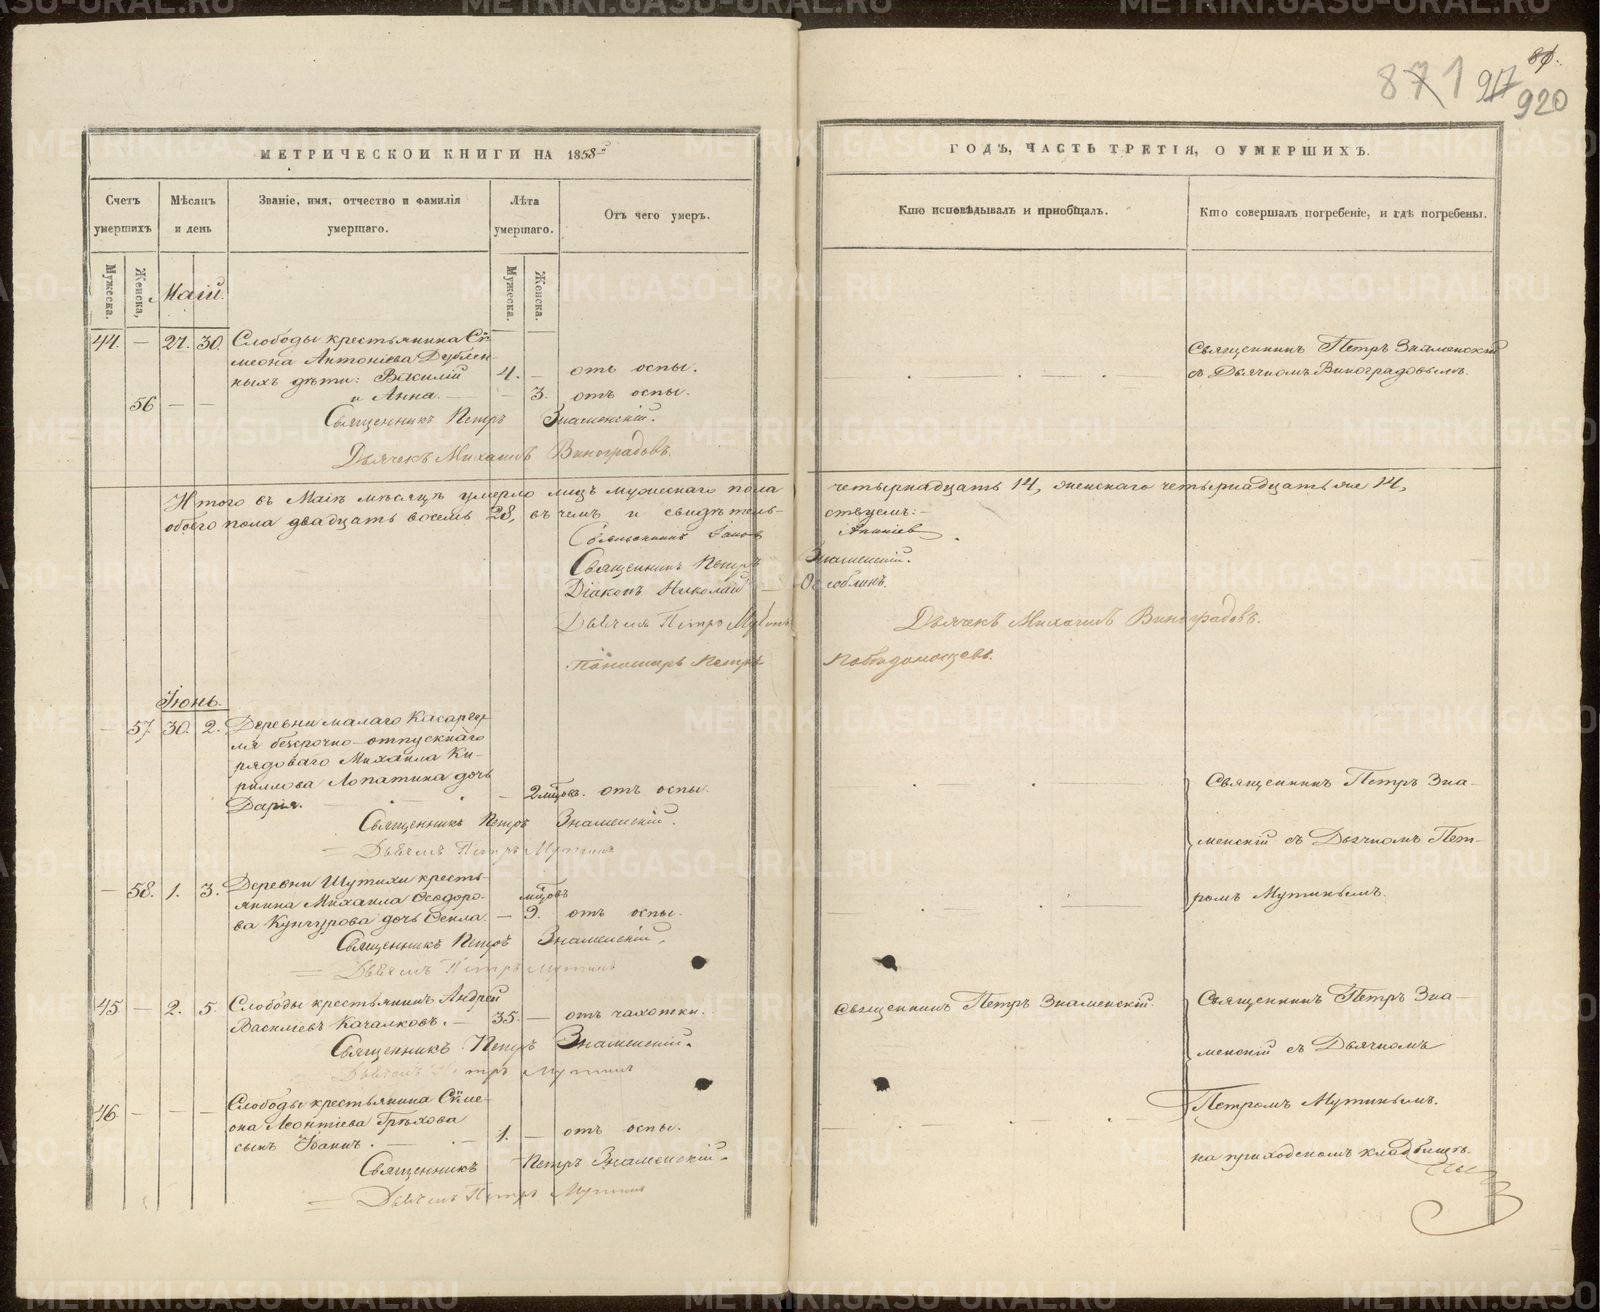 81.
871 917
920
МЕТРИЧЕСКОИ КНИГИ НА 1858й
ГОДЪ, ЧАСТЬ ТРЕТІЯ, О УМЕРШИХЪ.
Счетъ умершихъ
Мѣсяцъ и день
Званіе, имя, отчество и фамилія умершаго.
Лѣта умершаго.
Отъ чего умеръ.
Кто исповѣдывалъ и пріобщалъ.
Кто совершалъ погребеніе, и гдѣ погребены.
Мужеска.
Женска,
Маій.
Мужеска.
Женска.
44. — 27. 30. Слободы крестьянина Си-
меона Антоніева Дублен-
ныхъ дѣти: Василій 4. — отъ оспы.
56 — — и Анна. — 3. отъ оспы.
Священникъ Петръ Знаменскій
съ Дьячкомъ Виноградовымъ.
Священникъ Петръ Знаменскій.
Дьячекъ Михаилъ Виноградовъ.
Итого въ Маіѣ мѣсяцѣ умерло лицъ мужескаго пола четырнадцать 14, женскаго четырнадцать же 14,
обоего пола двадцать восемь 28, въ чемъ и свидѣтель- ствуемъ:
Священникъ Іаковъ Ананіев
Священникъ Петръ Знаменскій.
Діаконъ Николай
Дьячекъ Михаилъ Виноградовъ.
Пономарь Петръ Побѣдоносцевъ.
Іюнь.
— 57. 30. 2. Деревни малаго Касаргу-
ля безсрочно-отпускнаго
рядоваго Михаила Ки-
риллова Лопатина дочь
Дарія. — 2 мцовъ. отъ оспы.
Священникъ Петръ Знаменскій.
Дьячекъ Петръ Мутинъ
Священникъ Петръ Зна-
менскій съ Дьячкомъ Пет-
ромъ Мутинымъ.
— 58. 1. 3. Деревни Шутихи кресть-
янина Михаила Ѳеодоро- мцовъ
ва Кунгурова дочь Ѳекла — 9. отъ оспы.
Священникъ Петръ Знаменскій,
Дьячекъ Петръ Мутинъ
45 — 2. 5. Слободы крестьянинъ Андрей
Василіевъ Качалковъ. — 35. — отъ чахотки.
Священникъ Петръ Знаменскій.
Священникъ Петръ Знаменскій.
Дьячекъ Петръ Мутинъ
Священникъ Петръ Зна-
менскій съ Дьячкомъ
Петромъ Мутинымъ.
на приходскомъ кладбищѣ.
46 — — — Слободы крестьянина Симе-
она Леонтіева Грѣхова
сынъ Іоаннъ. — 1. — отъ оспы.
Священникъ Петръ Знаменскій.
Дьячекъ Петръ Мутинъ
METRIKI.GASO-URAL.RU